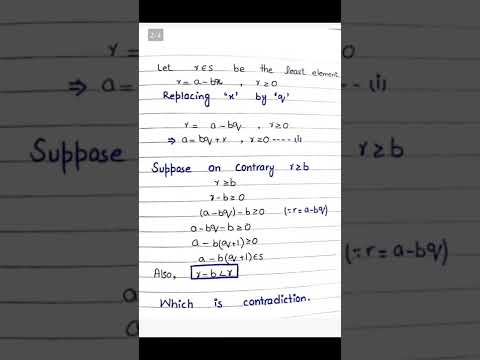 2/4
Let r ∈ S be the least element
r = a - bx , r ≥ 0
Replacing 'x' by 'q'
r = a - bq , r ≥ 0
⇒ a = bq + r , r ≥ 0 ---- (i)
Suppose on contrary r ≥ b
r ≥ b
r - b ≥ 0
(a - bq) - b ≥ 0 (∵ r = a - bq)
a - bq - b ≥ 0
a - b(q+1) ≥ 0
a - b(q+1) ∈ S
Also, r - b < r
Which is contradiction.